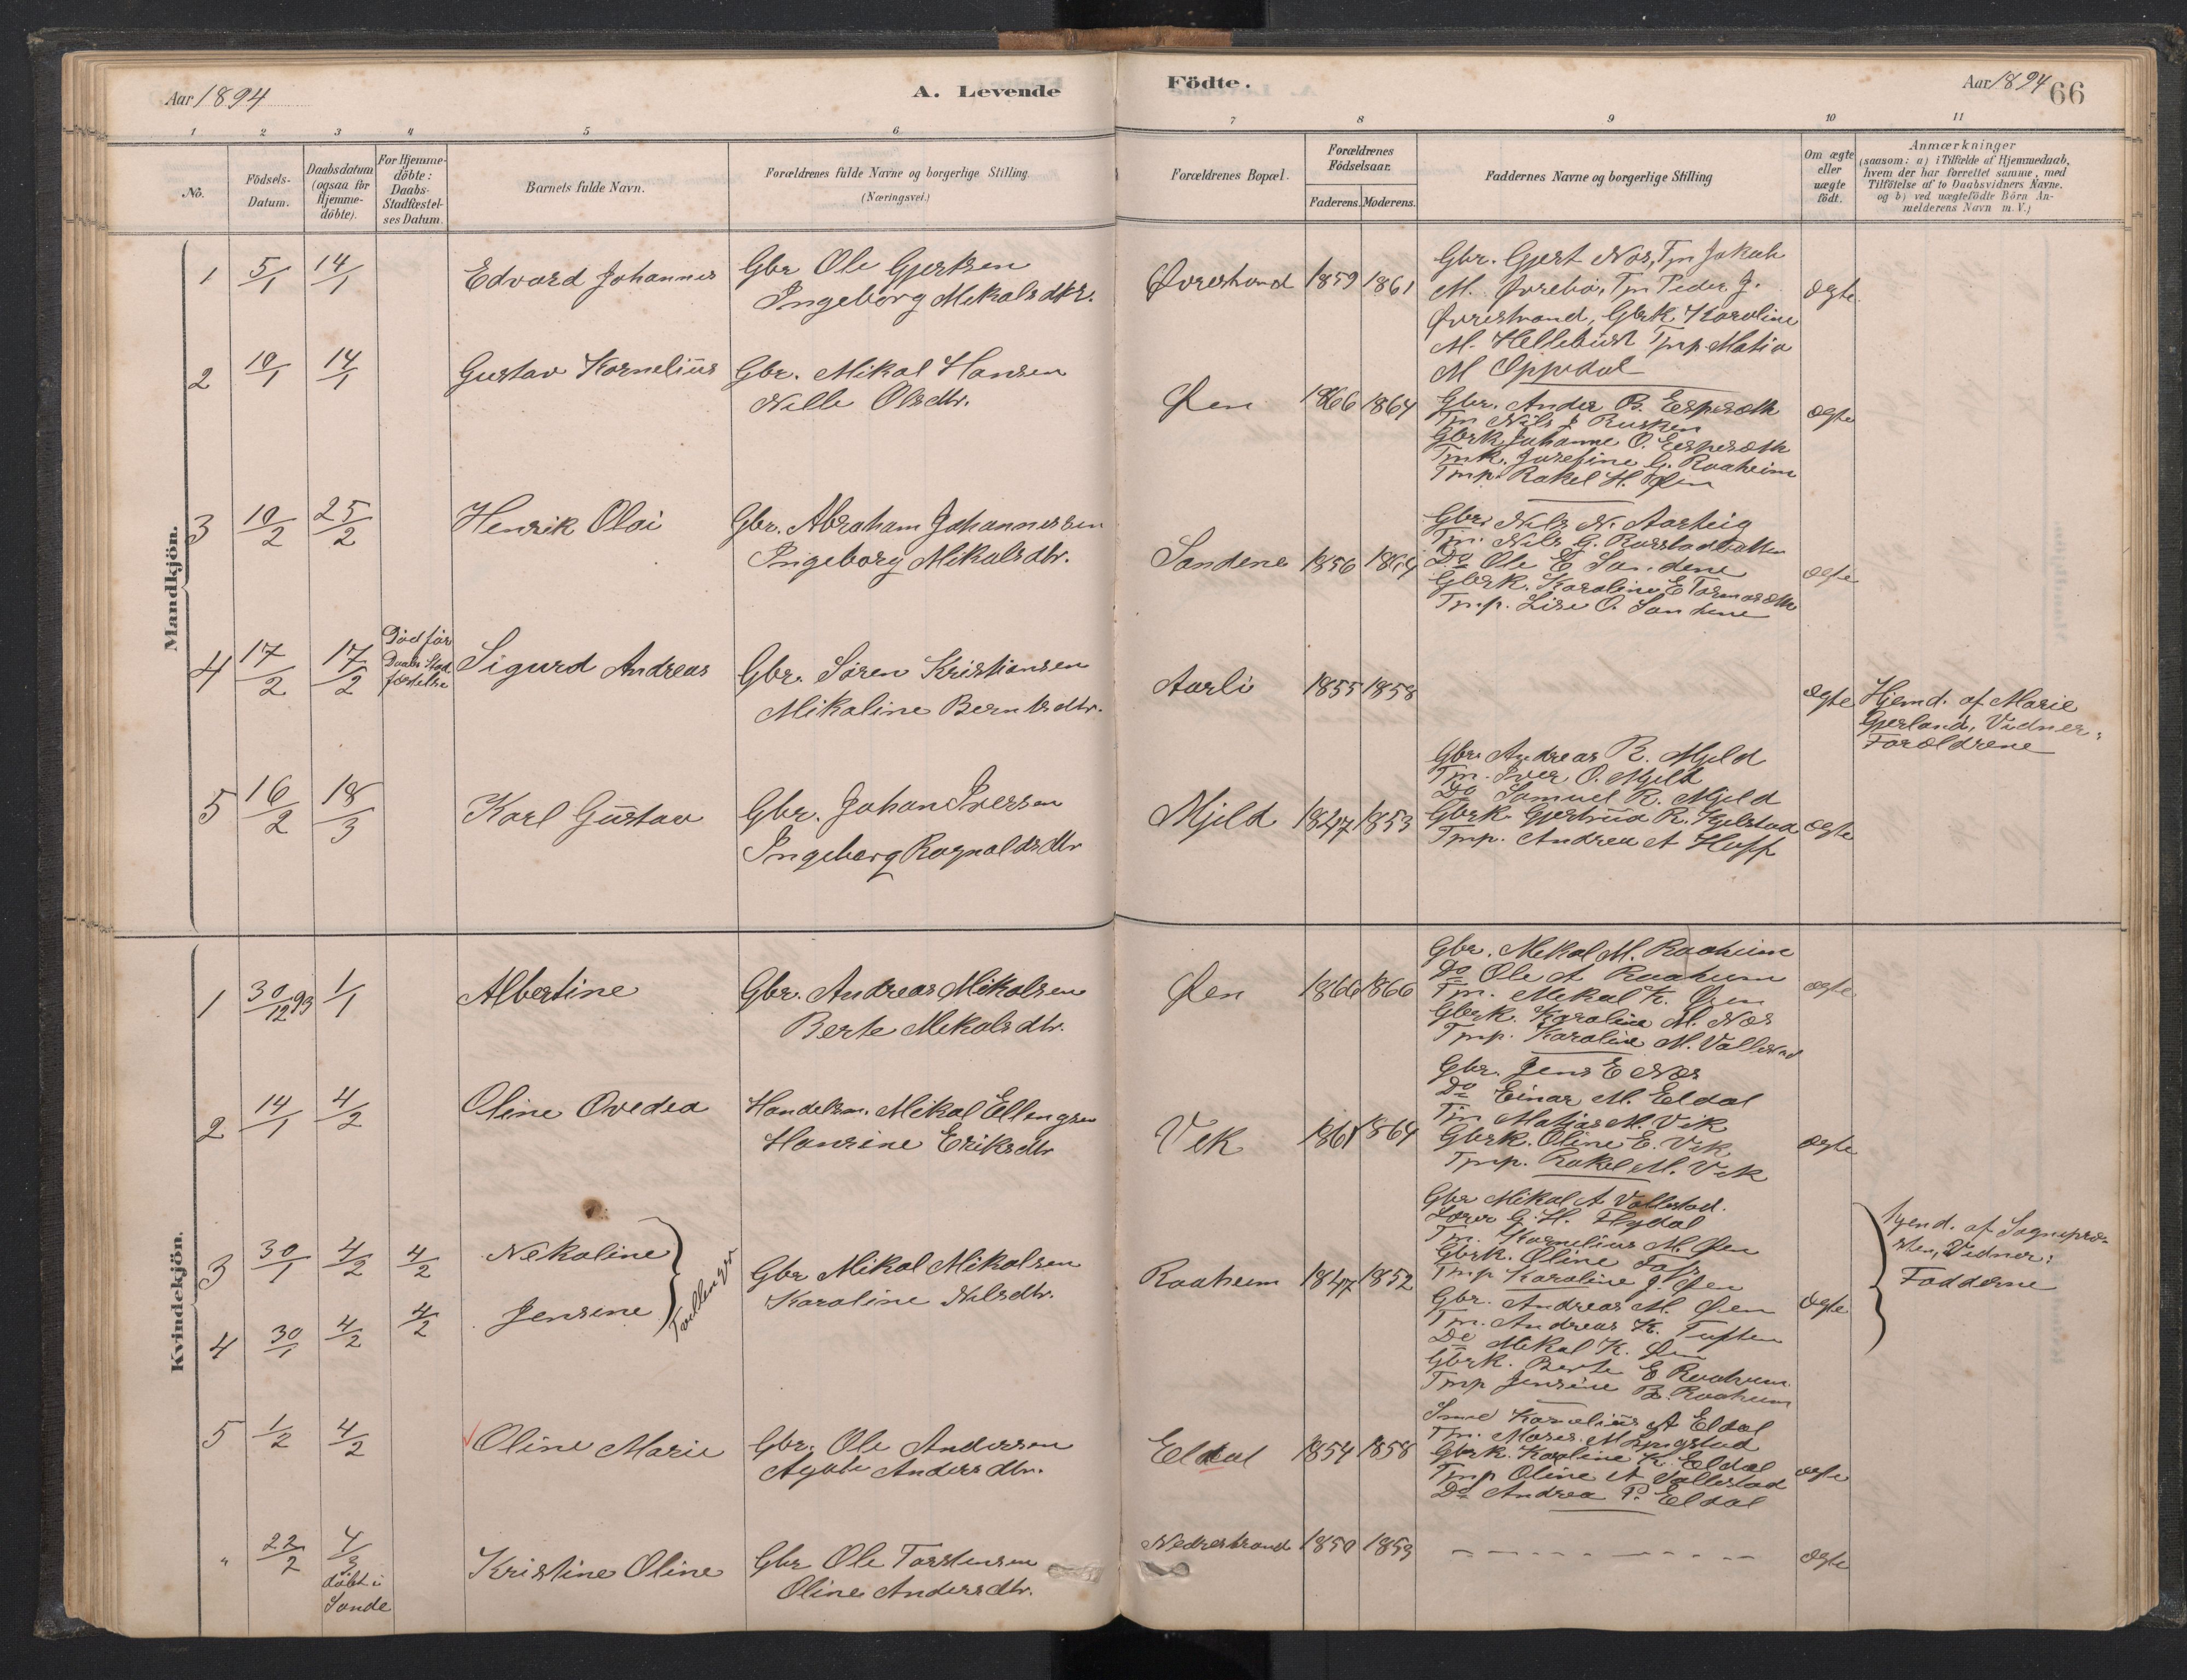 Aar 1894
A. Levende
Födte.
Aar 1894
66
1 2 3 4 5 6 7 8 9 10 11
No.
Födsels-
Datum.
Daabsdatum
(ogsaa for
Hjemme-
döbte).
For Hjemme-
döbte:
Daabs-
Stadfæstel-
ses Datum.
Barnets fulde Navn.
Forældrenes fulde Navne og borgerlige Stilling
(Næringsvei.)
Forældrenes Bopæl.
Forældrenes
Födselsaar.
Faderens. Moderens.
Faddernes Navne og borgerlige Stilling
Om ægte
eller
uægte
födt.
Anmærkninger
(saasom: a) i Tilfælde af Hjemmedaab,
hvem der har forrettet samme, med
Tilföielse af to Daabsvidners Navne.
og b) ved uægtefödte Börn An-
melderens Navn m. V.)
Mandkjön.
1 5/1 14/1 Edvard Johannes
Gbr Ole Gjertsen
Ingeborg Mikalsdtr.
Øvrestrand 1859 1861
Gbr. Gjert Nos, Tjn Jakob
M. Øvrebø, Tjn Peder J.
Øvrestrand, Gbrk Karoline
M. Hellebust Tjnp Matia
M Oppedal
ægte
2 10/1 14/1 Gustav Kornelius
Gbr. Mikal Hansen
Nille Olsdtr.
Øen 1866 1864
Gbr. Ander B. Espesæth
Tjn Nils J Rusken
Gbrk Johanne O. Espesæth
Tjnk. Josefine G. Raaheim
Tjnp. Rakel H. Øen
ægte
3 10/2 25/2 Henrik Olai
Gbr. Abraham Johannessen
Ingeborg Mikalsdtr.
Sandene 1856 1864
Gbr. Nils N. Aarsteig
Tjn. Nils G. Rorstadbotten
Do Ole E Sandene
Gbrk. Karoline E Tormosæth
Tjnp. Lise O. Sandene
ægte
4 17/2 17/2
Død før
Daabs Stad
fæstelse
Sigurd Andreas
Gbr. Søren Kristiansen
Mikaline Berntsdtr.
Aarli 1855 1858
ægte
Hjemd. af Marie
Gjerland, Vidner:
Forældrene
5 16/2 18/3 Karl Gustav
Gbr. Johan Iversen
Ingeborg Ragnaldsdtr
Mjeld 1847 1853
Gbr. Andreas R. Mjeld
Tjn. Iver O. Mjeld
Do Samuel R. Mjeld
Gbrk. Gjertrud R. Kjelstad
Tjnp. Andrea A Hoff
ægte
Kvindekjön.
1 30/12 93 1/1 Albertine
Gbr. Andreas Mikalsen
Berte Mikalsdtr.
Øen 1866 1866
Gbr. Mikal M. Raaheim
Do Ole A Raaheim
Tjn. Mikal K. Øen
Gbrk. Karoline M. Nos
Tjnp. Karoline M. Vallestad
ægte
2 14/1 4/2 Oline Ovedea
Handelsm. Mikal Ellengsen
Hansine Eriksdtr
Vik 1861 1864
Gbr. Jens E Nos
Do Einar M. Eldal
Tjn Matias M. Vik
Gbrk. Oline E. Vik
Tjnp. Rakel M. Vik
ægte
3 30/1 4/2 4/2 Nekoline
4 30/1 4/2 4/2 Jensine
Tvillinger
Gbr Mikal Mikalsen
Karoline Nilsdtr.
Raaheim 1847 1852
Gbr Mikal A Vallestad.
Lærer G. H. Flydal
Tjn. Kornelius M. Øen
Gbrk. Oline Foss
Tjnp Karoline J. Øen
Gbr. Andreas M. Øen
Tjn. Andreas K. Tuften
Do Mikal K. Øen
Gbrk. Berte E Raaheim.
Tjnp Jensine B. Raaheim
ægte
hjemd. af Sognepræ-
sten, Vidner:
Fadderne
5 1/2 4/2 Oline Marie
Gbr. Ole Andersen
Agate Andersdtr.
Eldal 1854 1858
Kornelius A Eldal
Tjn. Moses M Lyngstad
Gbrk. Karoline K. Eldal
Tjnp Oline A Vallestad
Do Andrea P. Eldal
ægte
" 22/2 4/3
døbt i
Sande
Kristine Oline
Gbr Ole Torstensen
Oline Andersdtr.
Nedrestrand 1850 1859
ægte